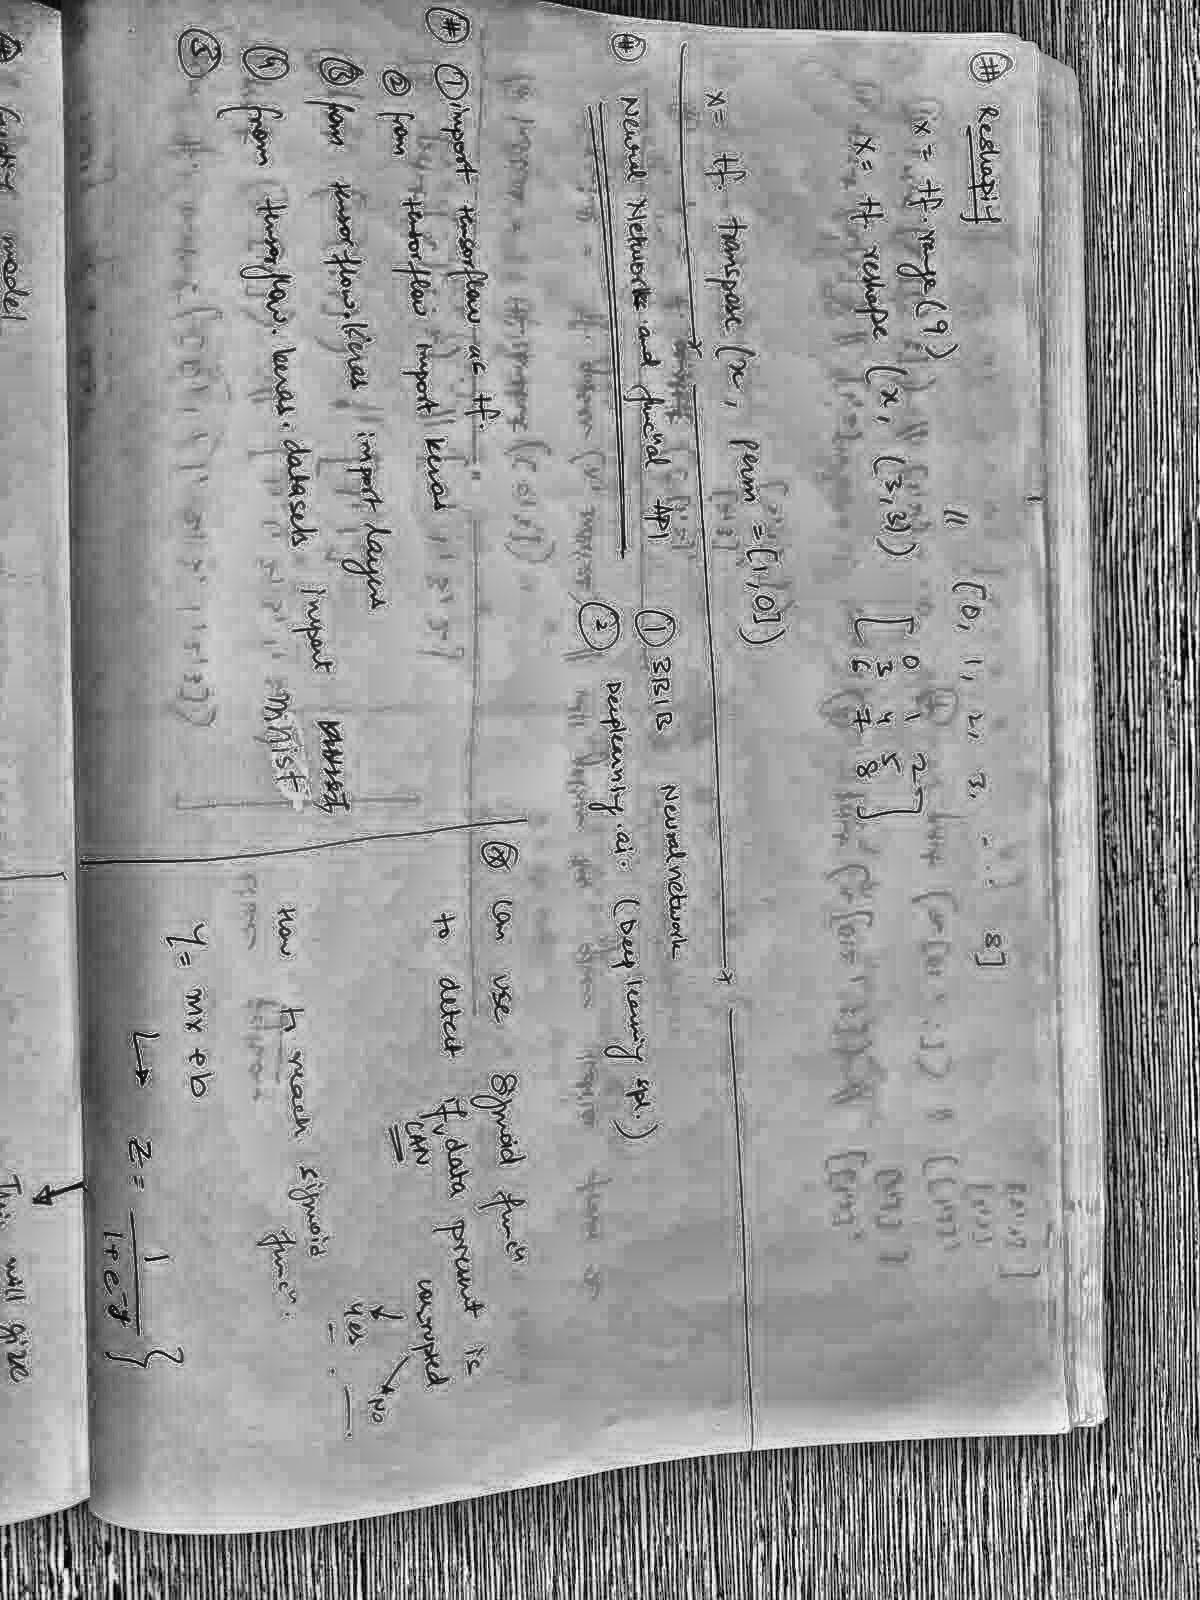 # Reshapiy
x = tf.range(9) // [0, 1, 2, 3, ... 8]
x = tf.reshape (x, (3,3)) [0 1 2
3 4 5
6 7 8]
x = tf. transpose (x, perm = [1,0])
# Neural Networks and funcnal API
① 3B1B Neural network
② Deeplearning.ai. (Deep learning spl.)
# ① import tensorflow as tf.
② from tensorflow import keras
③ from tensorflow.keras import layers
④ from tensorflow.keras.datasets import mnist
⑤
can use sigmoid funcn
to detect if data present is
CAN
corrupted
Yes No
How to reach sigmoid
funcn.
y = mx + b
↳ z = 1 / 1 + e-y }
model
This will give